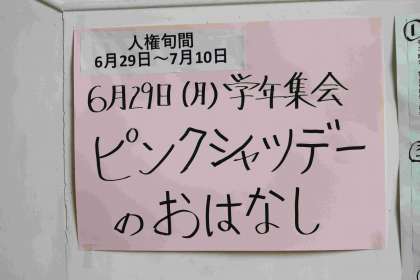 人権旬間
6月29日〜7月10日
6月29日(月)学年集会
ピンクシャツデー
のおはなし